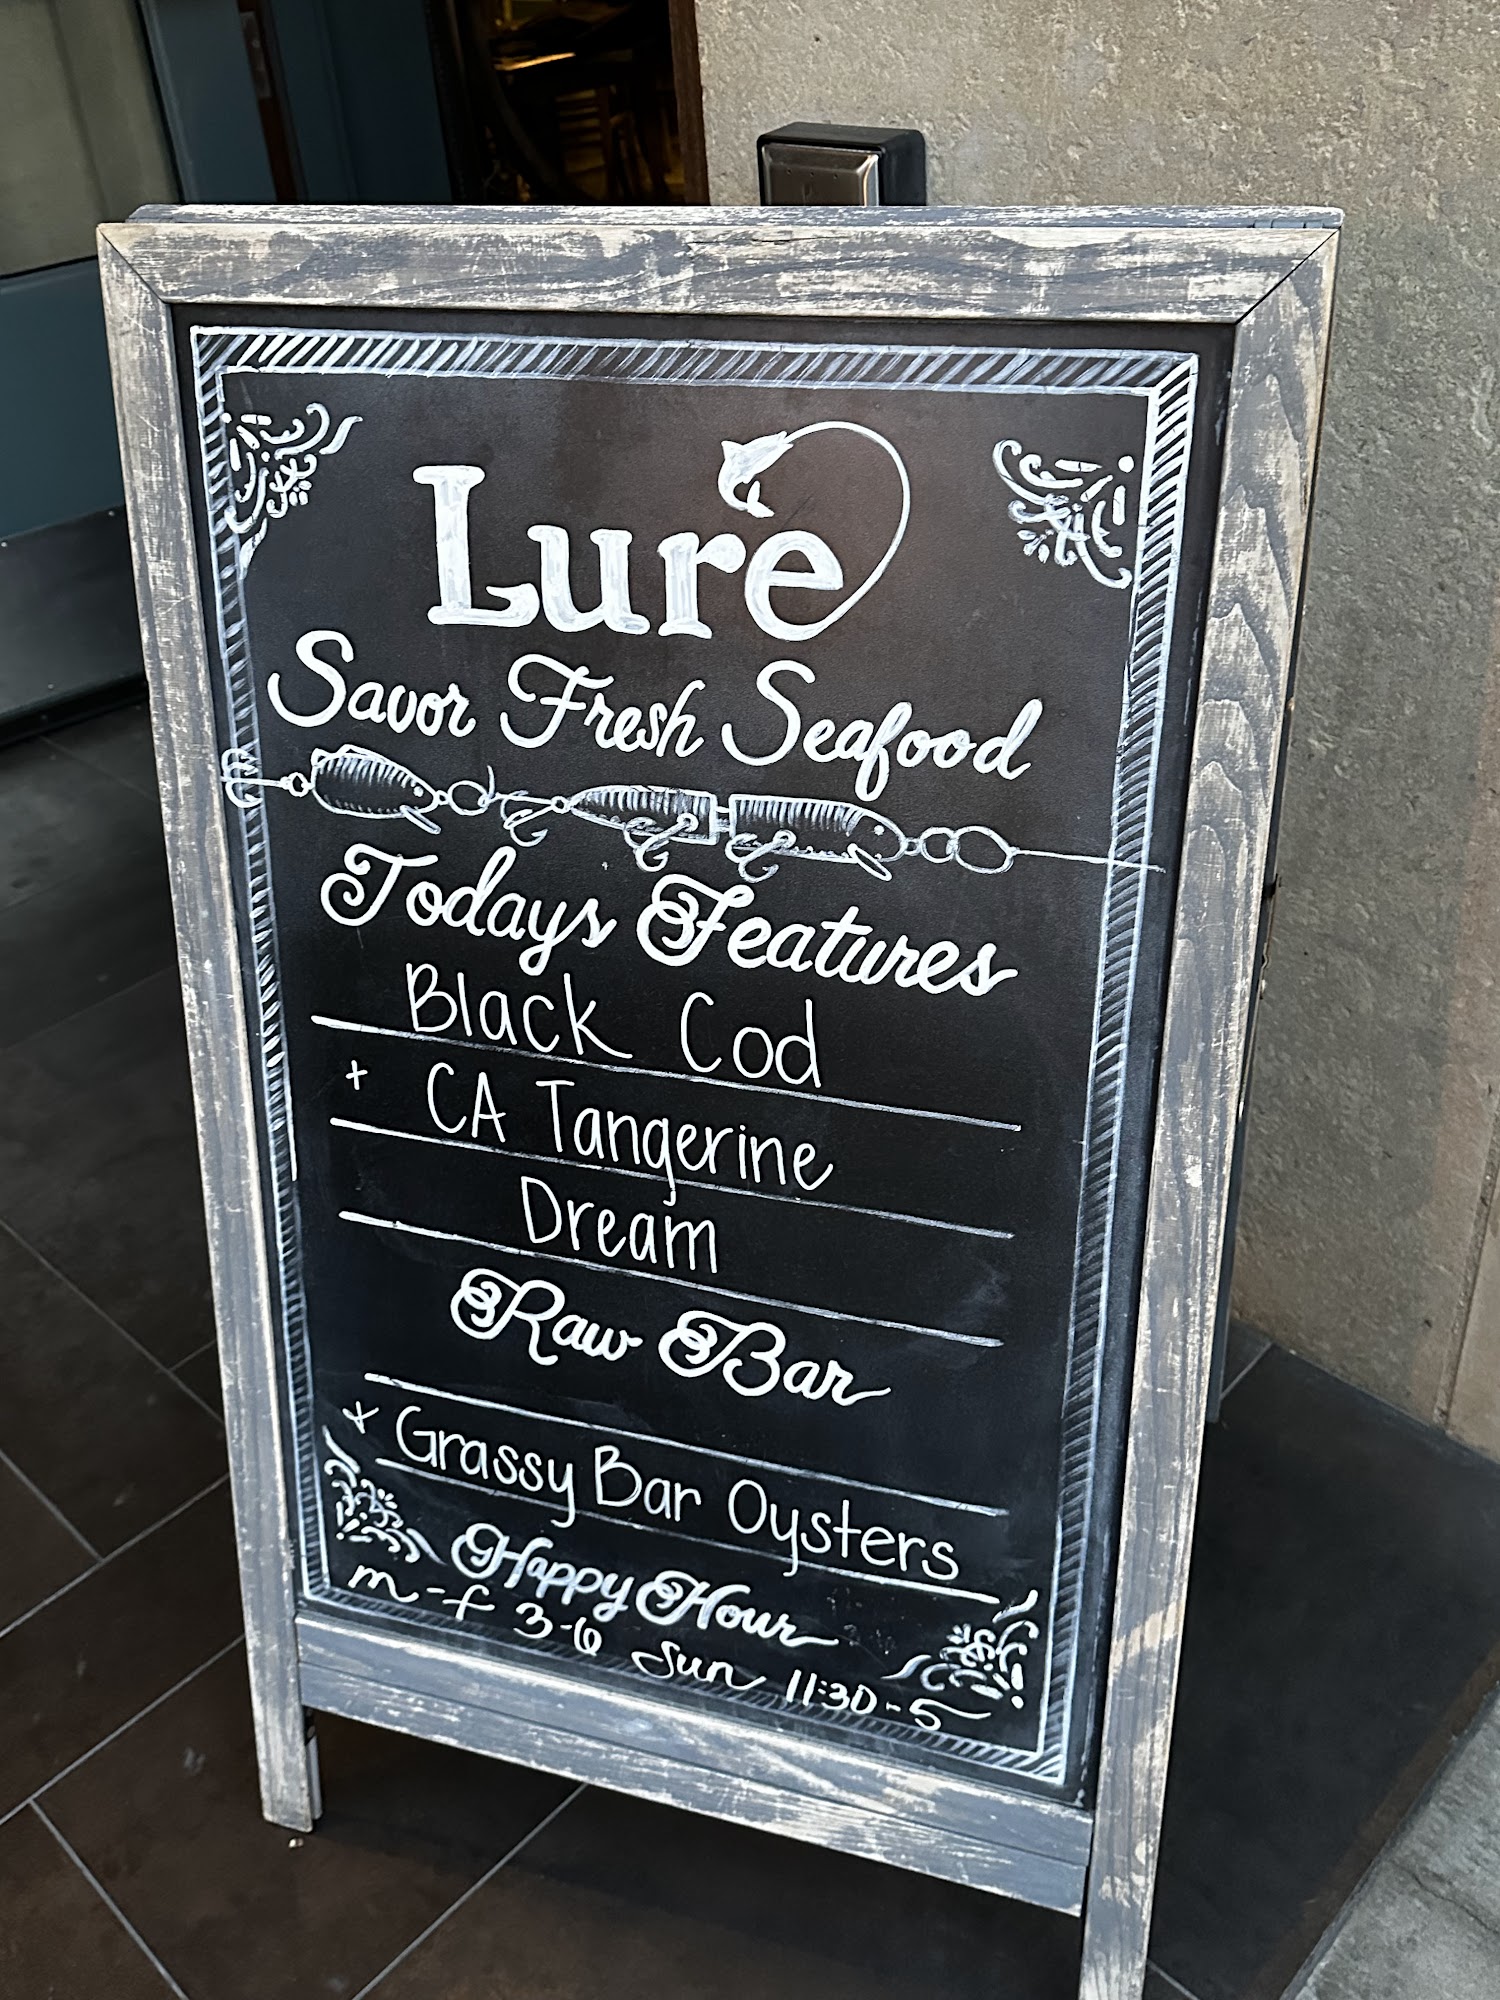 Lure
Savor Fresh Seafood
Todays Features
Black Cod
+ CA Tangerine
Dream
Raw Bar
+ Grassy Bar Oysters
Happy Hour
m-f 3-6 Sun 11:30-5